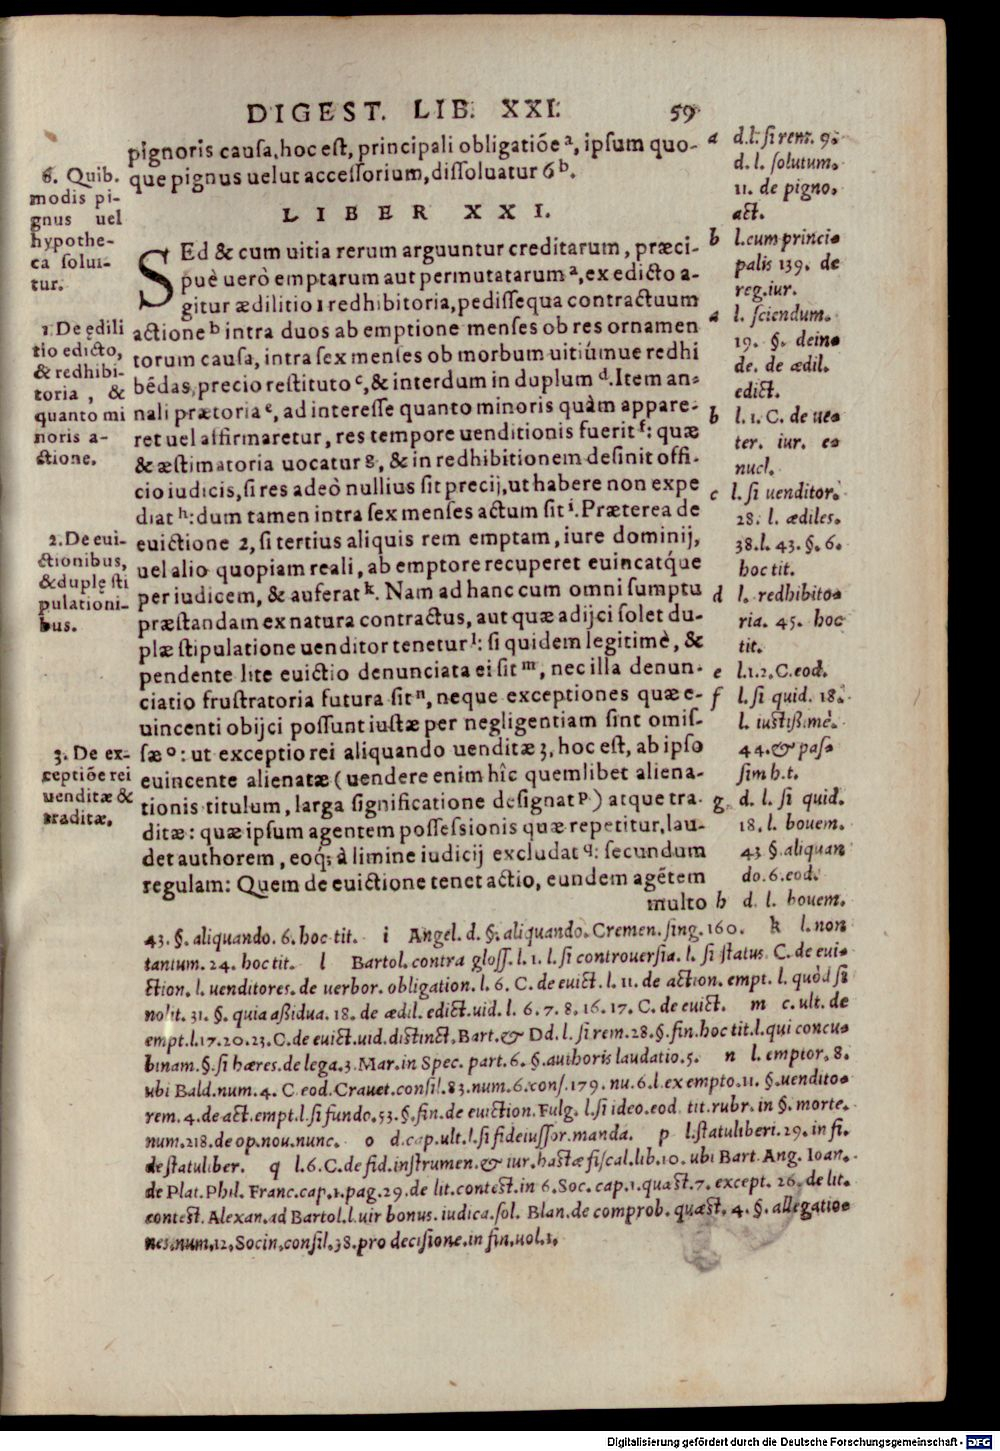 DIGEST. LIB. XXI. 59
pignoris causa, hoc est, principali obligatiõe ª, ipsum quo-
que pignus uelut accessorium, dissoluatur 6 ᵇ.
6. Quib.
modis pi-
gnus uel
hypothe-
ca solui-
tur.
LIBER XXI.
SEd & cum uitia rerum arguuntur creditarum, præci-
puè uerò emptarum aut permutatarum ª, ex edicto a-
gitur ædilitio 1 redhibitoria, pedissequa contractuum
actione ᵇ intra duos ab emptione menses ob res ornamen
torum causa, intra sex menses ob morbum uitiúmue redhi
bẽdas, precio restituto ᶜ, & interdum in duplum ᵈ. Item an-
nali prætoria ᵉ, ad interesse quanto minoris quàm appare-
ret uel affirmaretur, res tempore uenditionis fuerit ᶠ: quæ
& æstimatoria uocatur ᵍ, & in redhibitionem desinit offi-
cio iudicis, si res adeò nullius sit precij, ut habere non expe
diat ʰ: dum tamen intra sex menses actum sit ⁱ. Præterea de
euictione 2, si tertius aliquis rem emptam, iure dominij,
uel alio quopiam reali, ab emptore recuperet euincatq́ue
per iudicem, & auferat ᵏ. Nam ad hanc cum omni sumptu
præstandam ex natura contractus, aut quæ adijci solet du-
plæ stipulatione uenditor tenetur ˡ: si quidem legitimè, &
pendente lite euictio denunciata ei sit ᵐ, nec illa denun-
ciatio frustratoria futura sit ⁿ, neque exceptiones quæ e-
uincenti obijci possunt iustæ per negligentiam sint omis-
sæ ᵒ: ut exceptio rei aliquando uenditæ 3, hoc est, ab ipso
euincente alienatæ (uendere enim hîc quemlibet aliena-
tionis titulum, larga significatione designat ᵖ) atque tra-
ditæ: quæ ipsum agentem possessionis quæ repetitur, lau-
det authorem, eoq́; à limine iudicij excludat q: secundum
regulam: Quem de euictione tenet actio, eundem agẽtem
multo
1. De ędili
tio edicto,
& redhibi-
toria, &
quanto mi
noris a-
ctione.
2. De eui-
ctionibus,
& duplę sti
pulationi-
bus.
3. De ex-
ceptiõe rei
uenditæ &
traditæ.
a d. l. si rem. 9.
d. l. solutum.
11. de pigno.
act.
b l. cum princi-
palis 139. de
reg. iur.
a l. sciendum.
19. §. dein-
de. de ædil.
edict.
b l. 1. C. de ue-
ter. iur. e-
nucl.
c l. si uenditor.
28. l. ædiles.
38. l. 43. §. 6.
hoc tit.
d l. redhibito-
ria. 45. hoc
tit.
e l. 1. 2. C. eod.
f l. si quid. 18.
l. iustißimè.
44. & pas-
sim h. t.
g d. l. si quid.
18. l. bouem.
43 §. aliquan
do. 6. eod.
h d. l. bouem.
43. §. aliquando. 6. hoc tit. i Angel. d. §. aliquando. Cremen. sing. 160. k l. non
tantum. 24. hoc tit. l Bartol. contra gloss. l. 1. l. si controuersia. l. si status. C. de eui-
ction. l. uenditores. de uerbor. obligation. l. 6. C. de euict. l. 11. de action. empt. l. quòd si
nolit. 31. §. quia aßidua. 18. de ædil. edict. uid. l. 6. 7. 8. 16. 17. C. de euict. m c. ult. de
empt. l. 17. 20. 23. C. de euict. uid. distinct. Bart. & Dd. l. si rem. 28. §. fin. hoc tit. l. qui concu-
binam. §. si hæres. de lega. 3. Mar. in Spec. part. 6. §. authoris laudatio. 5. n l. emptor. 8.
ubi Bald. num. 4. C. eod. Crauet. consil. 83. num. 6. cons. 179. nu. 6. l. ex empto. 11. §. uendito-
rem. 4. de act. empt. l. si fundo. 53. §. fin. de euiction. Fulg. l. si ideo. eod. tit. rubr. in §. morte.
num. 218. de op. nou. nunc. o d. cap. ult. l. si fideiussor. manda. p l. statuliberi. 29. in fi.
de statuliber. q l. 6. C. de fid. instrumen. & iur. hastæ fiscal. lib. 10. ubi Bart. Ang. Ioan.
de Plat. Phil. Franc. cap. 1. pag. 29. de lit. contest. in 6. Soc. cap. 1. quæst. 7. except. 26. de lit.
contest. Alexan. ad Bartol. l. uir bonus. iudica. sol. Blan. de comprob. quæst. 4. §. allegatio-
nes. num. 12. Socin. consil. 38. pro decisione. in fin. uol. 1.
Digitalisierung gefördert durch die Deutsche Forschungsgemeinschaft - DFG